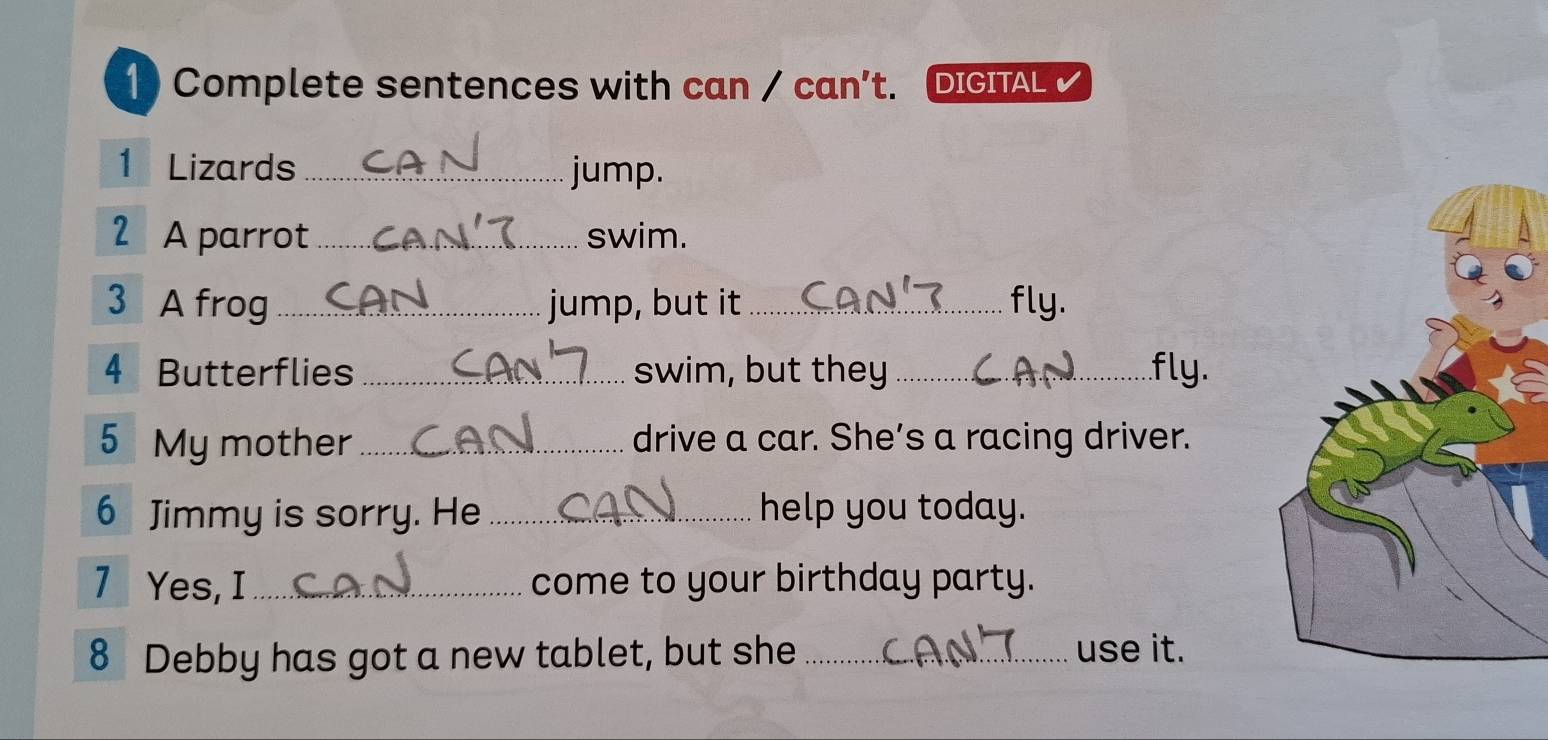 1 Complete sentences with can / can't. DIGITAL ✓
1 Lizards CAN jump.
2 A parrot CAN'T swim.
3 A frog CAN jump, but it CAN'T fly.
4 Butterflies CAN'T swim, but they CAN fly.
5 My mother CAN drive a car. She's a racing driver.
6 Jimmy is sorry. He CAN help you today.
7 Yes, I CAN come to your birthday party.
8 Debby has got a new tablet, but she CAN'T use it.